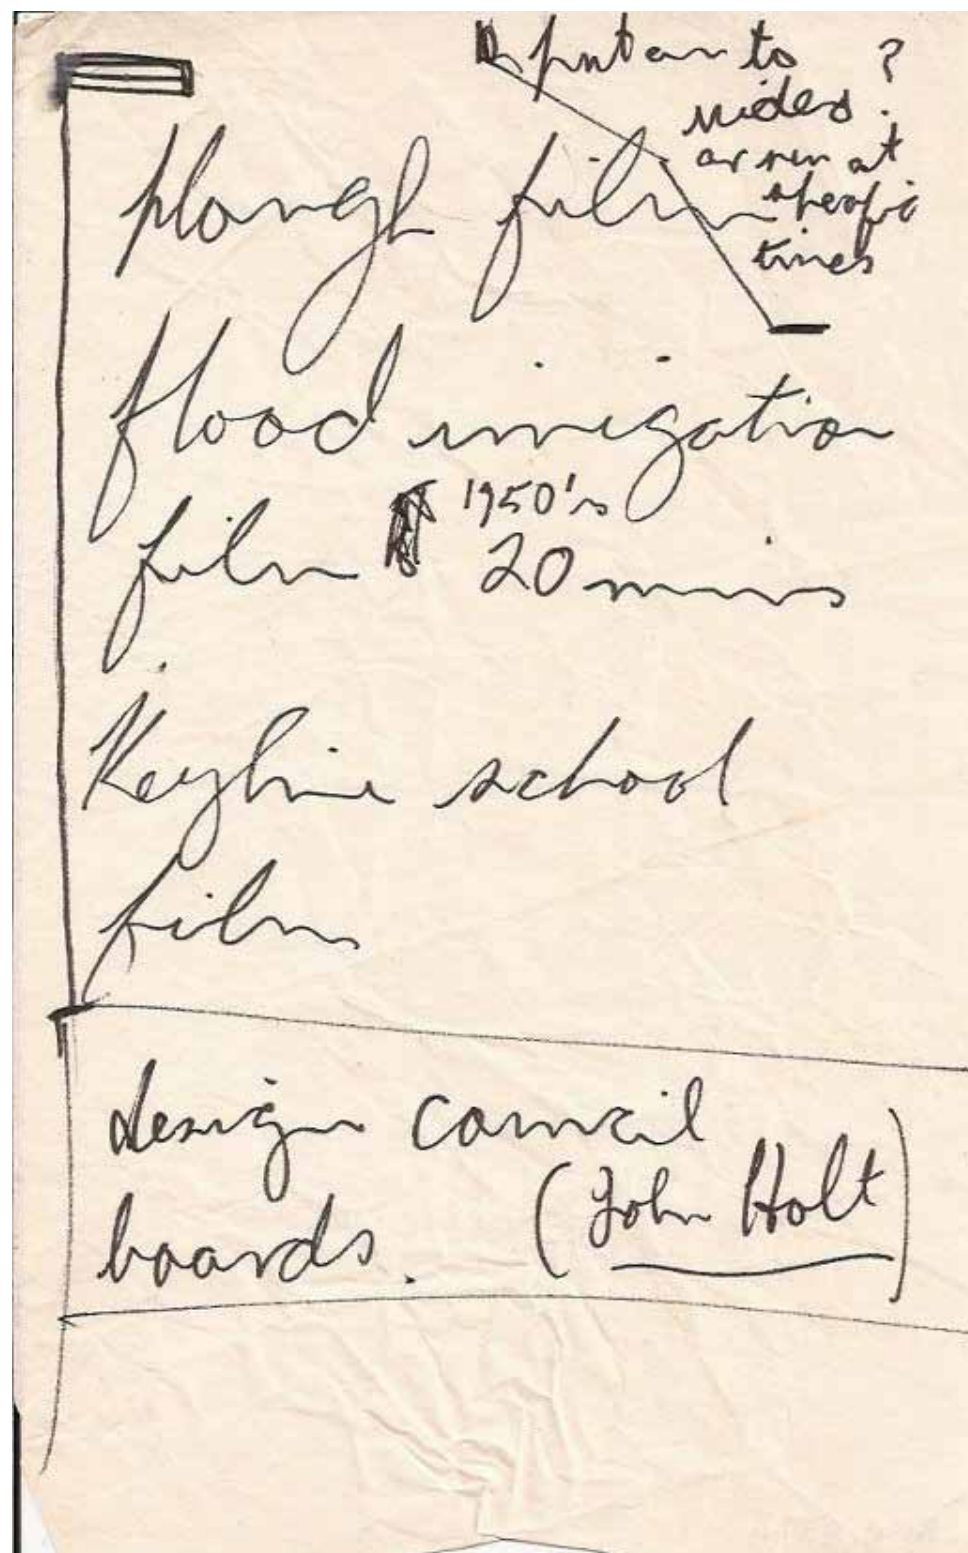 put on to ?
video
or run at
specific
times
plough film
flood irrigation
film 1950's
20 mins
Keyline school
film
design council
boards. (John Holt)